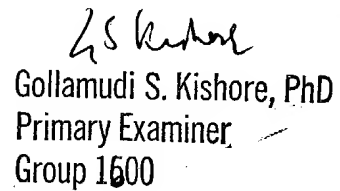 GS Kishore
Gollamudi S. Kishore, PhD
Primary Examiner
Group 1600